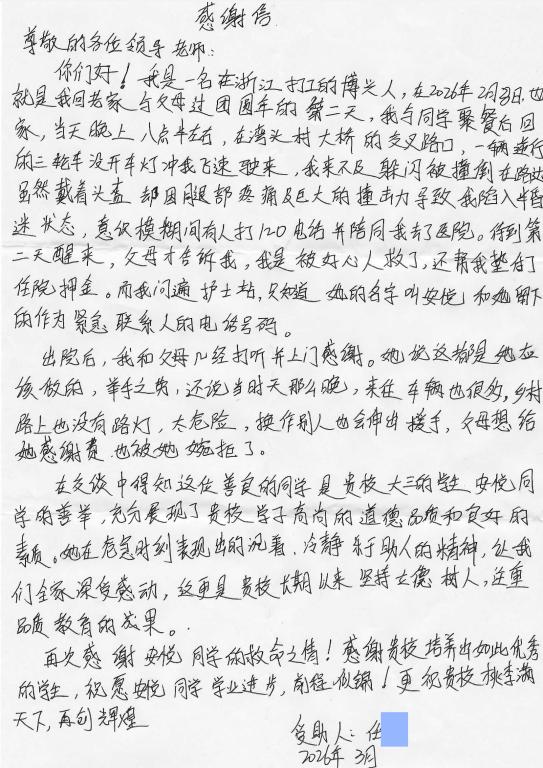 感谢信
尊敬的各位领导老师:
你们好!我是一名在浙江打工的博兴人,在2026年2月3日,也
就是我回老家与父母过团圆年的第二天,我与同学聚餐后回
家,当天晚上八点半左右,在湾头村大桥的交叉路口,一辆逆行
的三轮车没开车灯冲我飞速驶来,我来不及躲闪被撞倒在路边
虽然戴着头盔却因腿部疼痛及巨大的撞击力导致我陷入半昏
迷状态,意识模糊间有人打120电话并陪同我去了医院。待到第
二天醒来,父母才告诉我,我是被好心人救了,还帮我垫付了
住院押金。而我问遍护士站,只知道她的名字叫安悦,和她留下
的作为紧急联系人的电话号码。
出院后,我和父母几经打听并上门感谢。她说这都是她应
该做的,举手之劳,还说当时天那么晚,来往车辆也很多,乡村
路上也没有路灯,太危险,换作别人也会伸出援手,父母想给
她感谢费也被她婉拒了。
在交谈中得知这位善良的同学是贵校大三的学生,安悦同
学的善举,充分展现了贵校学子高尚的道德品质和良好的
素质。她在危急时刻表现出的沉着、冷静、乐于助人的精神,让我
们全家深受感动,这更是贵校长期以来坚持立德树人,注重
品质教育的成果。
再次感谢安悦同学的救命之情!感谢贵校培养出如此优秀
的学生,祝愿安悦同学学业进步,前程似锦!更祝贵校桃李满
天下,再创辉煌
受助人:任
2026年3月